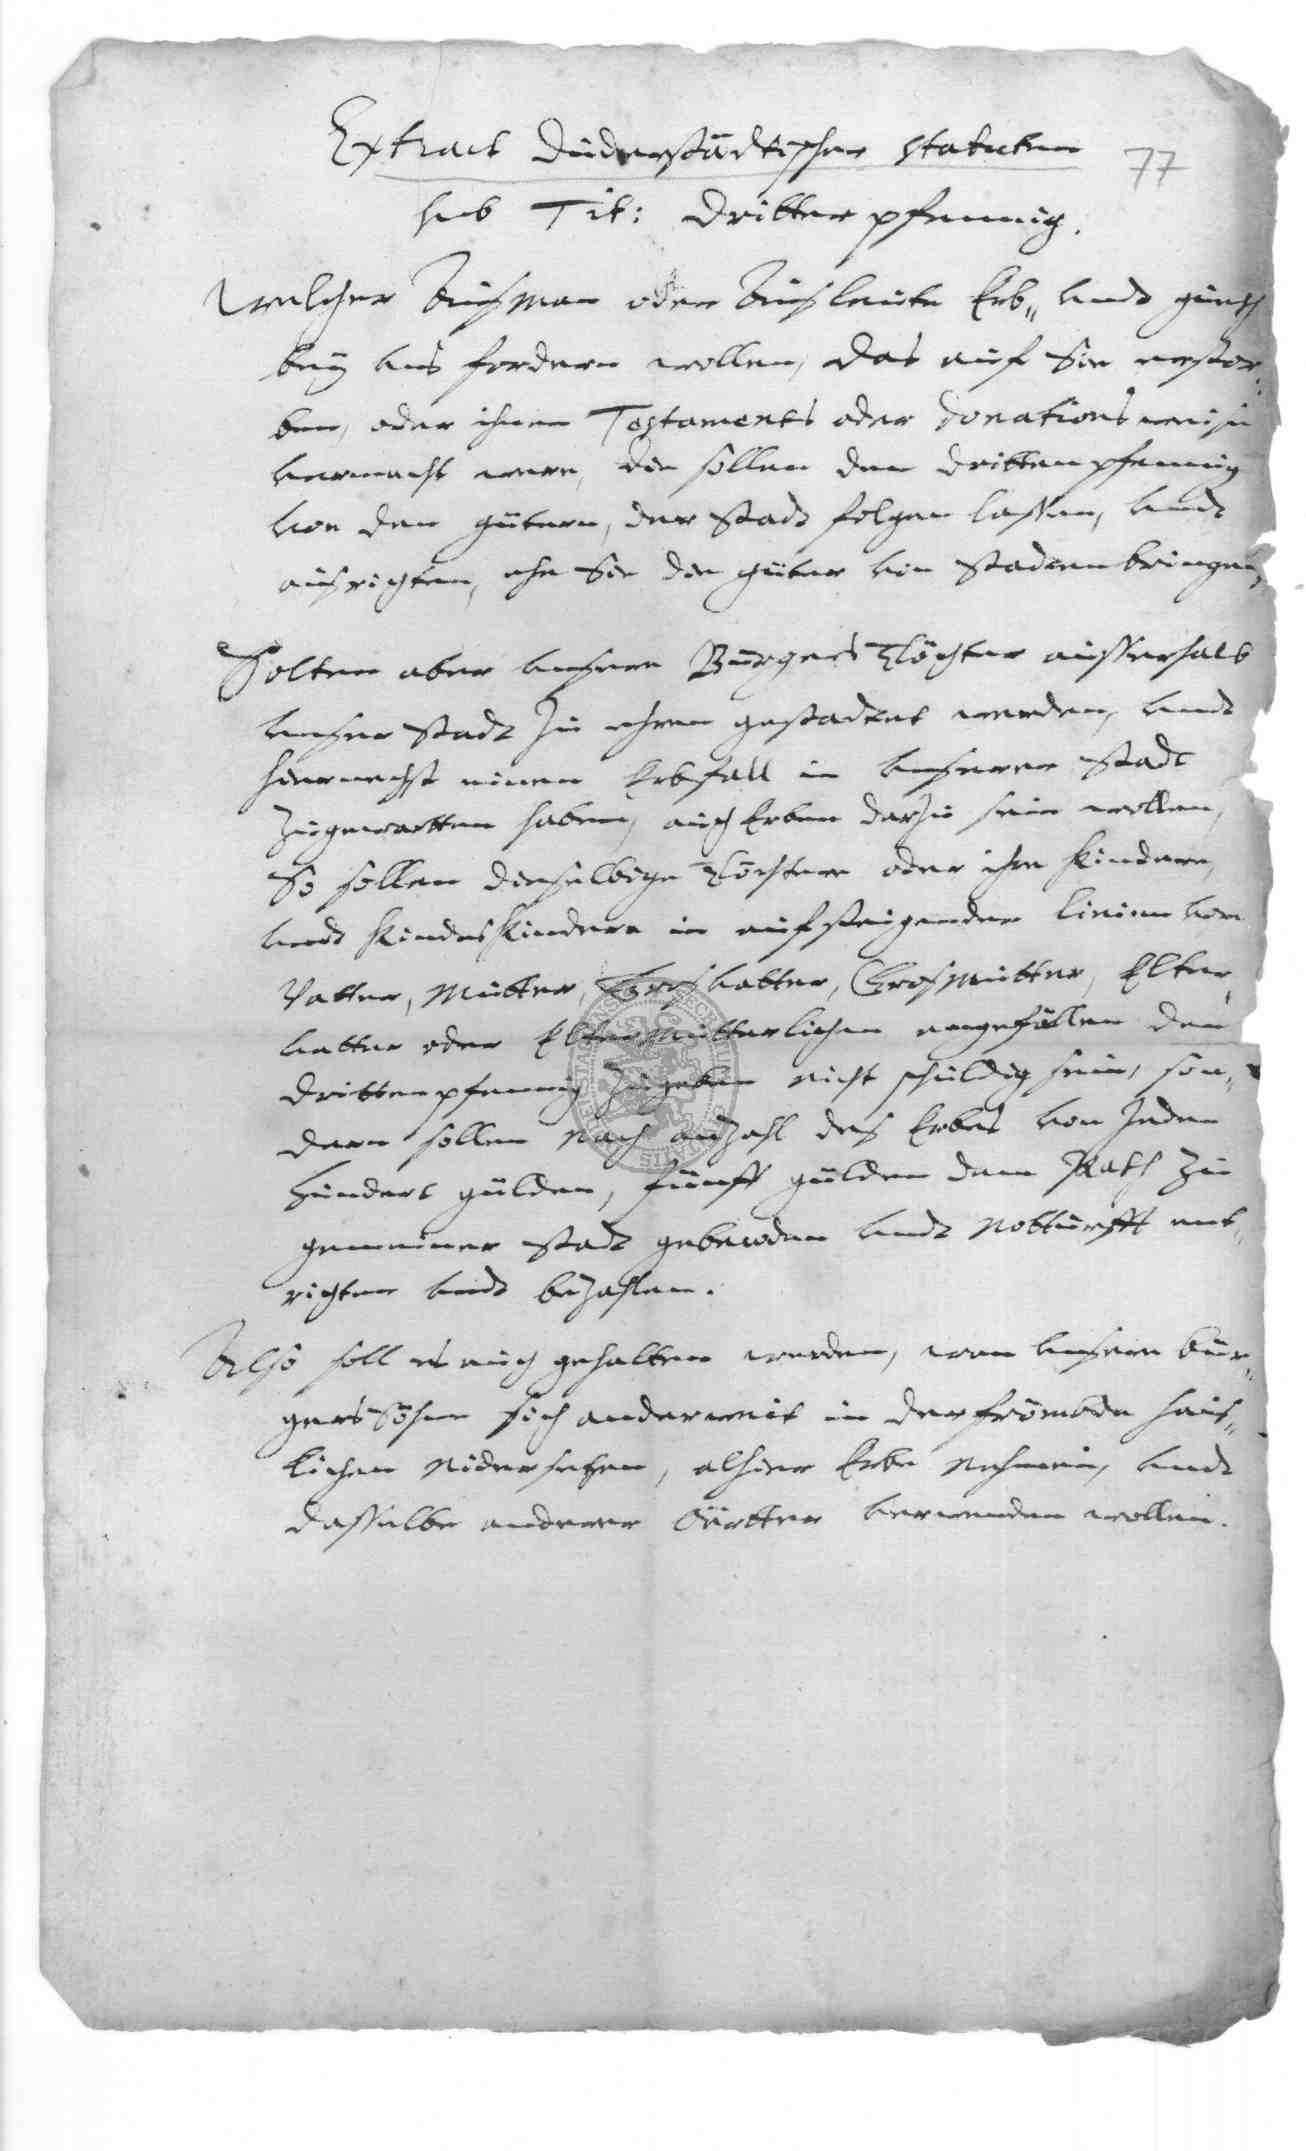 Extract Duderstädtischer Statuten
77
sub Tit: Dritter pfennig.
Welcher Ausman oder Ausleute Erb„ undt guth
bey uns fordern wollen, das auf Sie erstor„
ben, oder ihnen Testaments oder donations weise
vermacht were, die sollen den dritten pfennig
von den gütern, der Stadt folgen lassen, undt
ausrichten, ehe Sie die güter von Stadten bringen,
Solten aber unsere Burgers Töchter ausserhalb
unser Stadt zu ehren gestadtet werden, undt
hiernechst einen Erbfall in unserer Stadt
zugewartten haben, auch Erben darzu sein wollen,
So sollen dieselbige Töchter oder ihre Kindere,
undt Kindes Kindere in aufsteigender linien von
Vatter, Mutter, Grosvatter, Grosmutter, Elter„
vatter oder Eltermutterlichen angefällen den
dritten pfennig zugeben nicht schuldig sein, son„
dern sollen nach anzahl des Erbes von Jeden
hundert gulden, fünff gulden dem Rath zu
gemeiner Stadt gebewden undt notturfft ent„
richten undt bezahlen.
Also soll es auch gehalten werden, wan unsere bür„
gers Söhne sich anderweit in der frömbde heus„
lichen nidersetzen, alhier Erbe nehmen, undt
dasselbe anderer Örtter verwenden wollen.